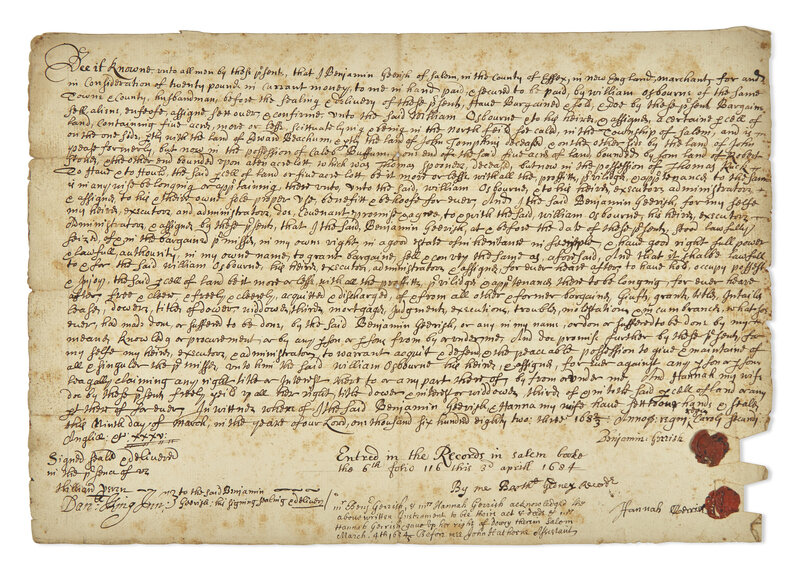 Bee it Knowne unto all men by these p'sents, that I Benjamin Gerrish of Salem, in the County of Essex, in new England, marchant, for and
in Consideration of twenty pound in currant money, to me in hand paid, & secured to be paid, by william osbourne of the same
Towne & County, husbandman, before the sealing & delivery of these p'sents, Have Bargained & sold, & doe by these p'sents Bargain
sell, aliene, enfeofe, assigne, sett over & confirme unto the said william osbourne & to his heires & assignes, a certaine p'cell of
land, Containing five acres, more or lesse, scittuate lying & being in the north feild soe cald, in the Township of salem, and is
on the one side, with the land of Edward Beachum, & with the land of John Tompkins deceased & on the other side by the land of John
pease formerly but now in the possession of Caleb Buffum, & one end of the said five acres of land bounded by som land of Robert
& the other end bounded upon a ten acre lott which was Thomas spooners, deceased, but now in the possession of Thomas
To Have & to Hould, the said p'cell of land or five acre lott, be it more or lesse with all the proffitts, p'viledges & apptenances to the same
in any wise belonging or appertaining there unto, unto the said, william osbourne, & to his heires, executors administrators
& assignes, to his & theire owne sole proper use, benefitt & behoofe for ever, And I the said Benjamin Gerrish, for my selfe
my heires, executors and administrators, doe Covenant promise & agree, to & with the said, william osbourne, his heires, executors
Administrators & assignes by these p'sents, that I the said, Benjamin Gerrish, at & before the date of these p'sents, stood lawfully
seized, of & in the bargained p'misses, in my own right, in a good estate of inheritance in fee simple & have good right, full power
& lawfull, authourity, in my owne name, to grant bargaine, sell & convey the same as, aforesaid, And that it shalbe lawfull
to & for the said william osbourne, his heires, executors, administrators & assignes, for ever heare after to have hold, occupy possess
& Injoy, the said p'cell of land be it more or less with all the proffitts, p'viledges & appertenances there to be longing, for ever heare
after free & cleer, & freely & cleerly, acquitted & discharged, of & from all other & former bargains, Guifts, grants, titles, Intailes
leases, dowers, titles of dowers widdowes thirds, mortgages, Judgments, executions, troubles, molestations & incumbrances, what so
ever, had mad don, or suffered to be done, by the said Benjamin Gerrish, or any in my name, or don or suffered to be done by my
meanes, Knowledg or procurement or by any p'son or p'sons from by or under me, And doe promise further by these p'sents, for
my selfe my heires, executors & administrators, to warrant acquit & defend & the peaceable possession to give & maintaine of
all & singuler the p'misses, unto him the said william Osbourne his heires, & assignes, for ever against any p'son or p'sons
leagally claiming any right title or Interest there to or any part there of, by from or under me, And Hannah my wife
doe by these p'sents freely yeild up all her right title dower & interest or widdowes, thirds of & in the said p'cell of land or any
p't there of for ever. In wittnes where of I the said Benjamin Gerrish & Hanna my wife Have sett our hands & seales
this Ninth day, of March, in the yeare of our Lord, on thousand six hundred eighty two: three 1683 Annoqe: regni Regis Caroly secundi
Anglie &c xxxv:
Benjamin Gerrish
Signed seald & delivered
in the p'sence of us
william
Dan:ll King Jun:r
us to the said Benjamin
Gerrish, his signing sealing & delivery
Entred in the Records in salem booke
the 6th folio 116 this 3d aprill 1684
By me Recorder
mr Benj: Gerrish, & mrs Hannah Gerrish acknowledge the
above written Instrument to be their act & deed & mrs
Hannah Gerrish gave up her right of dowry therin Salem
March. 4th 1683/4 Before mee John Hathorne Assistant
Hannah Gerrish